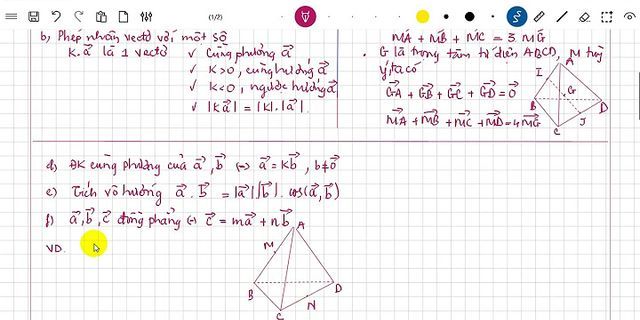 (1/2)
b) Phép nhân vectơ với một số
K.a⃗ là 1 vectơ
✓ Cùng phương a⃗
✓ K>0, cùng hướng a⃗
✓ K<0, ngược hướng a⃗
✓ |Ka⃗| = |K|.|a⃗|
MA⃗ + MB⃗ + MC⃗ = 3 MG⃗
. G là trọng tâm tứ diện ABCD, M tuỳ
ý, ta có
GA⃗ + GB⃗ + GC⃗ + GD⃗ = 0⃗
MA⃗ + MB⃗ + MC⃗ + MD⃗ = 4MG⃗
A
I
G
B
D
J
C
d) ĐK cùng phương của a⃗, b⃗ ⇔ a⃗ = Kb⃗, b⃗≠0⃗
e) Tích vô hướng a⃗ . b⃗ = |a⃗||b⃗| . cos(a⃗, b⃗)
f) a⃗, b⃗, c⃗ đồng phẳng ⇔ c⃗ = ma⃗ + nb⃗
VD.
A
M
B
D
N
C